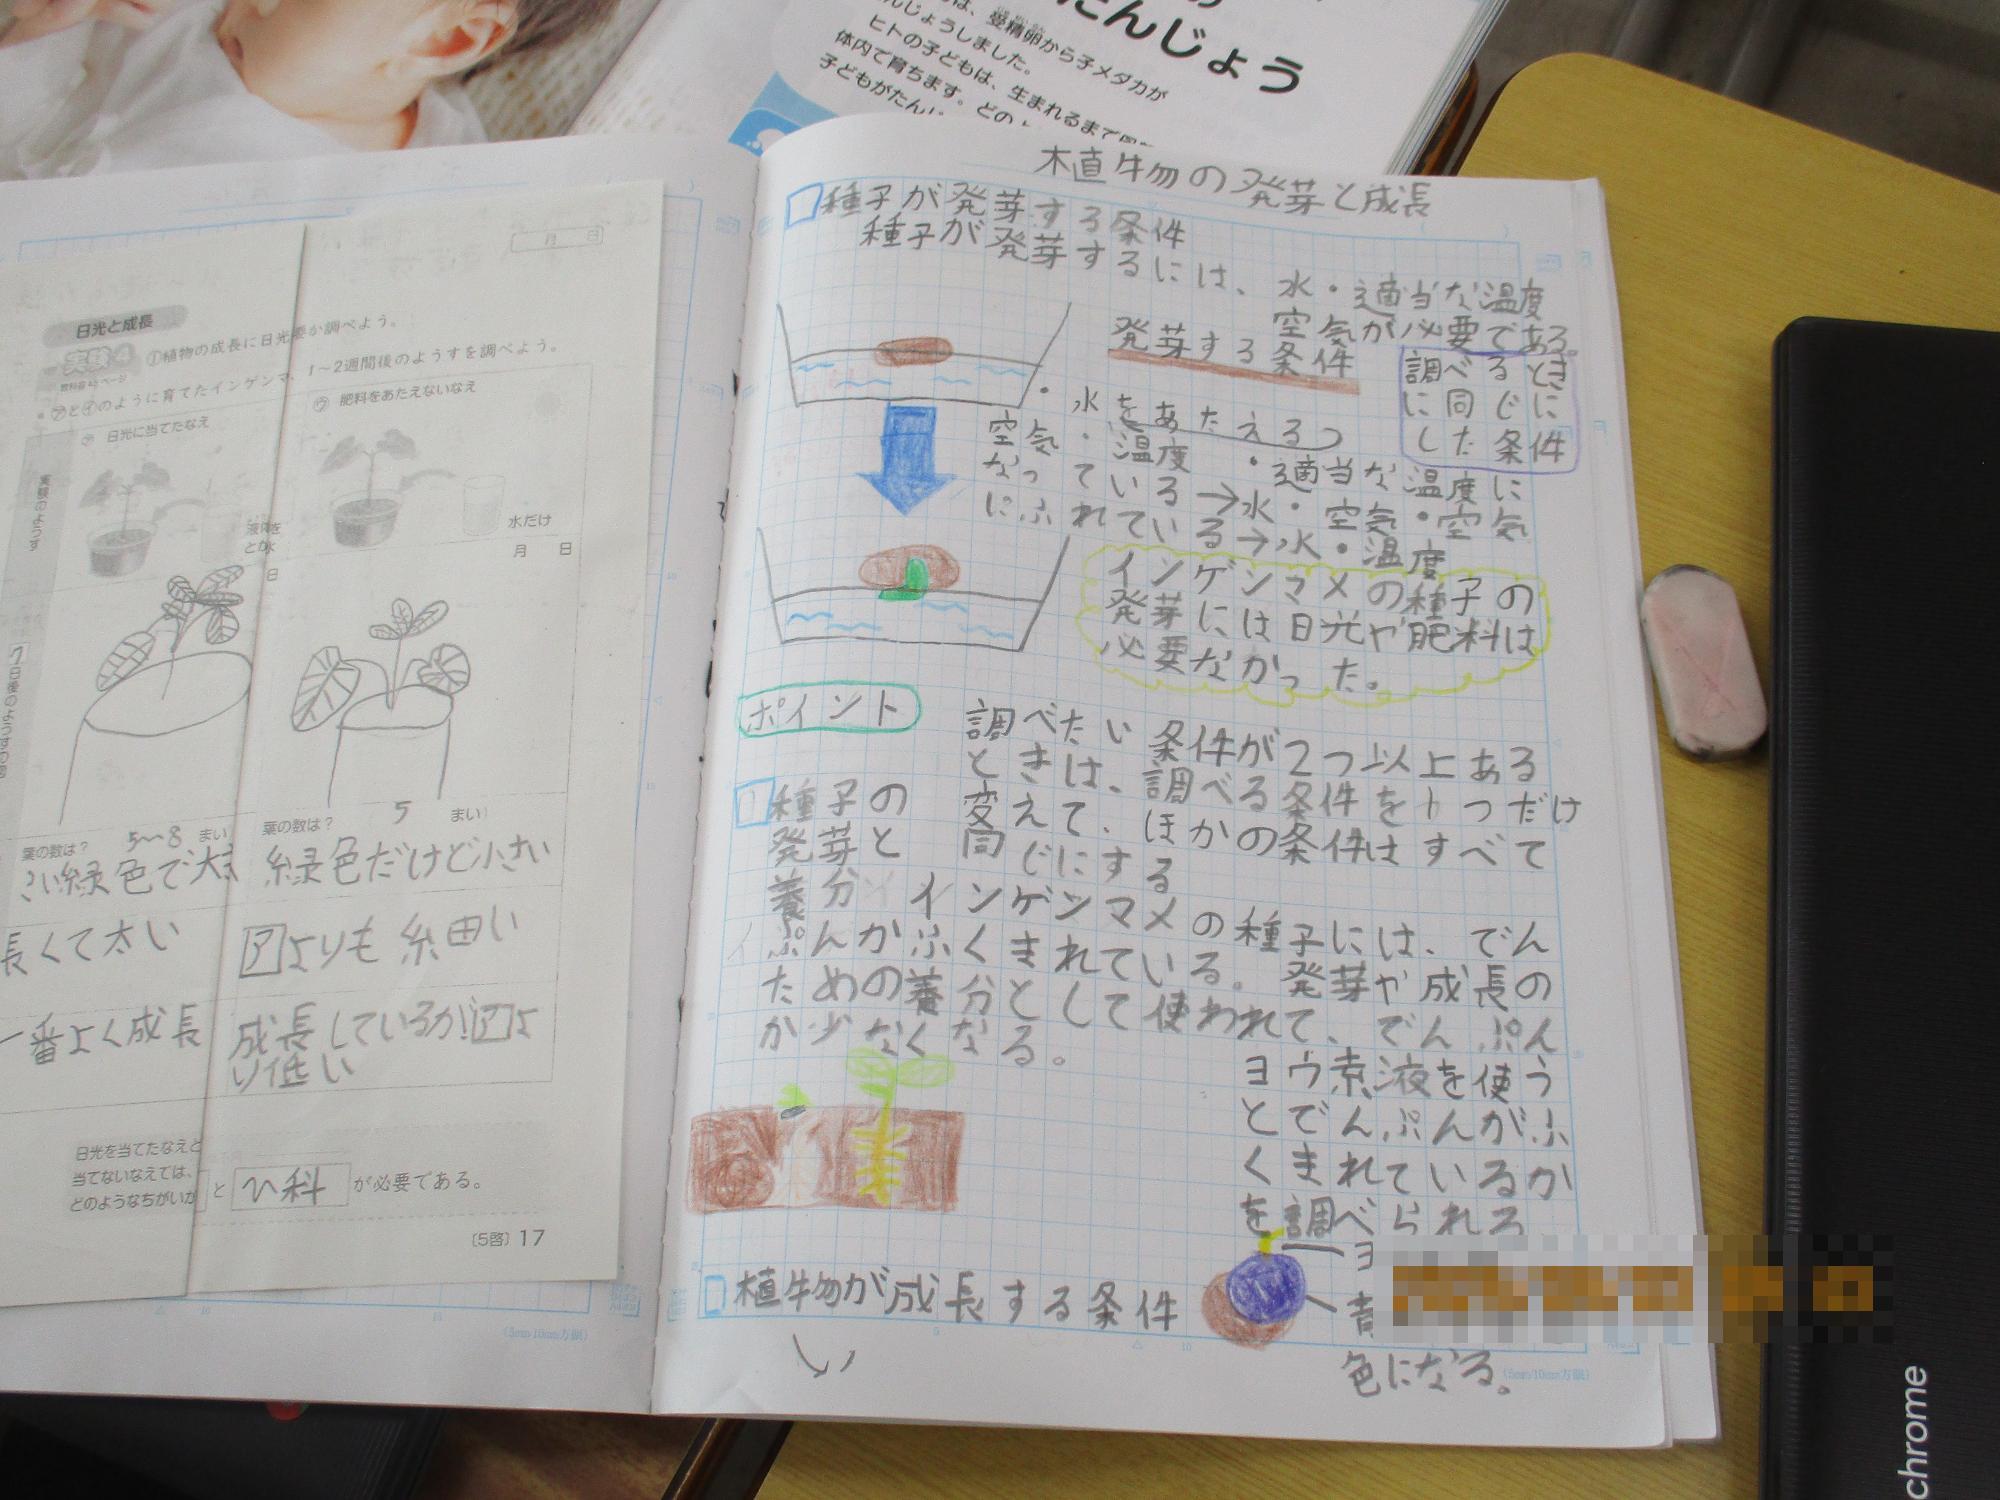 たんじょう
は、受精卵から子メダカが
んじょうしました。
ヒトの子どもは、生まれるまで
体内で育ちます。どの
子どもがたん
月 日
日光と成長
実験4
①植物の成長に日光
か調べよう。
教科書45ページ
・㋐と㋑のように育てたインゲンマ
、1～2週間後のようすを調べよう。
日光に当てたなえ
㋒ 肥料をあたえないなえ
実験のようす
水だけ
月 日
日
7日後のようすの図
葉の数は? 5~8 まい
葉の数は? 5 まい
さい緑色で大き
緑色だけど小さい
長くて太い
アよりも細い
一番よく成長
成長しているが!アよ
り低い
日光を当てたなえと
当てないなえでは、
どのようなちがいか
と ひ料 が必要である。
〔5啓〕17
(5mm10mm方眼)
植物の発芽と成長
種子が発芽する条件
種子が発芽するには、水・適当な温度
空気が必要である。
発芽する条件
調べるとき
に同じに
した条件
・水をあたえる
・適当な温度に
なっている→水・空気
・空気
にふれている→水・温度
インゲンマメの種子の
発芽には日光や肥料は
必要なかった。
ポイント
調べたい条件が2つ以上ある
ときは、調べる条件を1つだけ
変えて、ほかの条件はすべて
同じにする
種子の
発芽と
養分
インゲンマメの種子には、でん
ぷんがふくまれている。発芽や成長の
ための養分として使われて、でんぷん
が少なくなる。
ヨウ素液を使う
とでんぷんがふ
くまれているか
を調べられる
ヨ
青
色になる。
植物が成長する条件
い
(5mm10mm方眼)
chrome